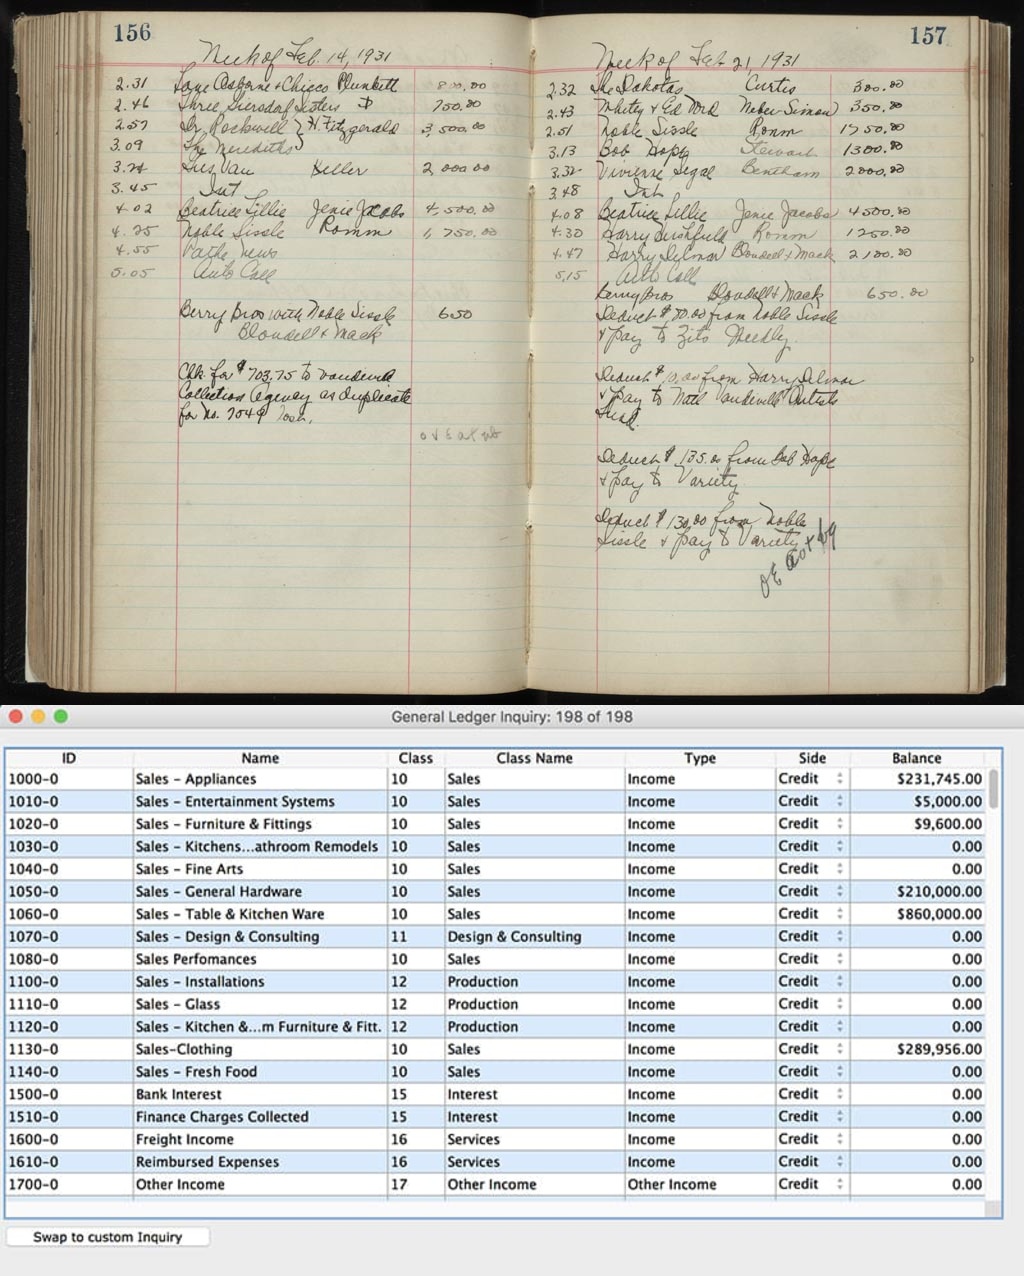 156
Week of Feb. 14, 1931
2.31 Faye Osborne + Chicco Plunkett 800.00
2.46 Three Giersdorf Sisters 750.00
2.57 Dr. Rockwell } H. Fitzgerald 3,500.00
3.09 The Merediths
Gus Van Keller 2 000 00
3.45 Int
4.02 Beatrice Lillie Jenie Jacobs 4,500.00
4.25 Noble Sissle Romm 1,750.00
4.55 Pathe News
5.05 Auto Call
Berry Bros with Noble Sissle 650
Blondell + Mack
Chk for $703.75 to Vaudeville
Collection Agency as duplicate
for no. 7049
157
Week of Feb 21, 1931
2.32 The Dakotas Curtis 300.00
2.43 Whitey + Ed Ford Weber-Simon 350.00
2.51 Noble Sissle Romm 1750.00
3.13 Bob Hope Stewart 1300.00
3.32 Vivienne Segal Bentham 2000.00
3.48 Int
4.08 Beatrice Lillie Jenie Jacobs 4500.00
4.30 Harry Hirshfield Romm 1250.00
4.47 Harry Delmar Blondell + Mack 2100.00
5.15 Auto Call
Berry Bros Blondell + Mack 650.00
Deduct $70.00 from Noble Sissle
+ Pay to Zits Weekly.
Deduct $10.00 from Harry Delmar
+ Pay to Natl Vaudeville Artists
Fund.
Deduct $135.00 from Bob Hope
+ Pay to Variety
Deduct $130.00 from Noble
Sissle + Pay to Variety
General Ledger Inquiry: 198 of 198
ID Name Class Class Name Type Side Balance
1000-0 Sales - Appliances 10 Sales Income Credit $231,745.00
1010-0 Sales - Entertainment Systems 10 Sales Income Credit $5,000.00
1020-0 Sales - Furniture & Fittings 10 Sales Income Credit $9,600.00
1030-0 Sales - Kitchens...athroom Remodels 10 Sales Income Credit 0.00
1040-0 Sales - Fine Arts 10 Sales Income Credit 0.00
1050-0 Sales - General Hardware 10 Sales Income Credit $210,000.00
1060-0 Sales - Table & Kitchen Ware 10 Sales Income Credit $860,000.00
1070-0 Sales - Design & Consulting 11 Design & Consulting Income Credit 0.00
1080-0 Sales Perfomances 10 Sales Income Credit 0.00
1100-0 Sales - Installations 12 Production Income Credit 0.00
1110-0 Sales - Glass 12 Production Income Credit 0.00
1120-0 Sales - Kitchen &...m Furniture & Fitt. 12 Production Income Credit 0.00
1130-0 Sales-Clothing 10 Sales Income Credit $289,956.00
1140-0 Sales - Fresh Food 10 Sales Income Credit 0.00
1500-0 Bank Interest 15 Interest Income Credit 0.00
1510-0 Finance Charges Collected 15 Interest Income Credit 0.00
1600-0 Freight Income 16 Services Income Credit 0.00
1610-0 Reimbursed Expenses 16 Services Income Credit 0.00
1700-0 Other Income 17 Other Income Other Income Credit 0.00
Swap to custom Inquiry